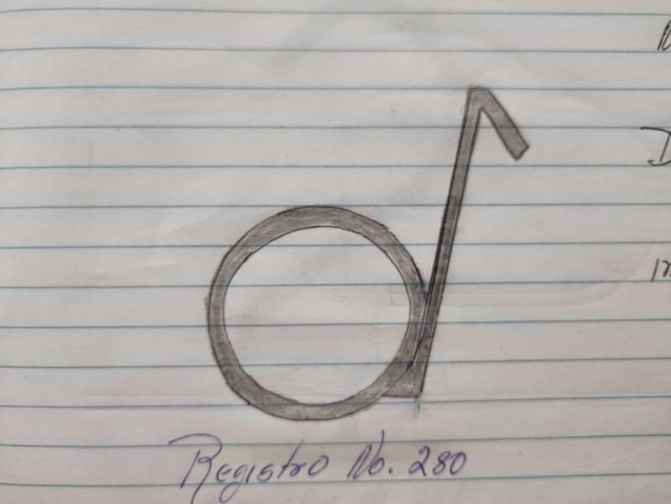 Registro No. 280